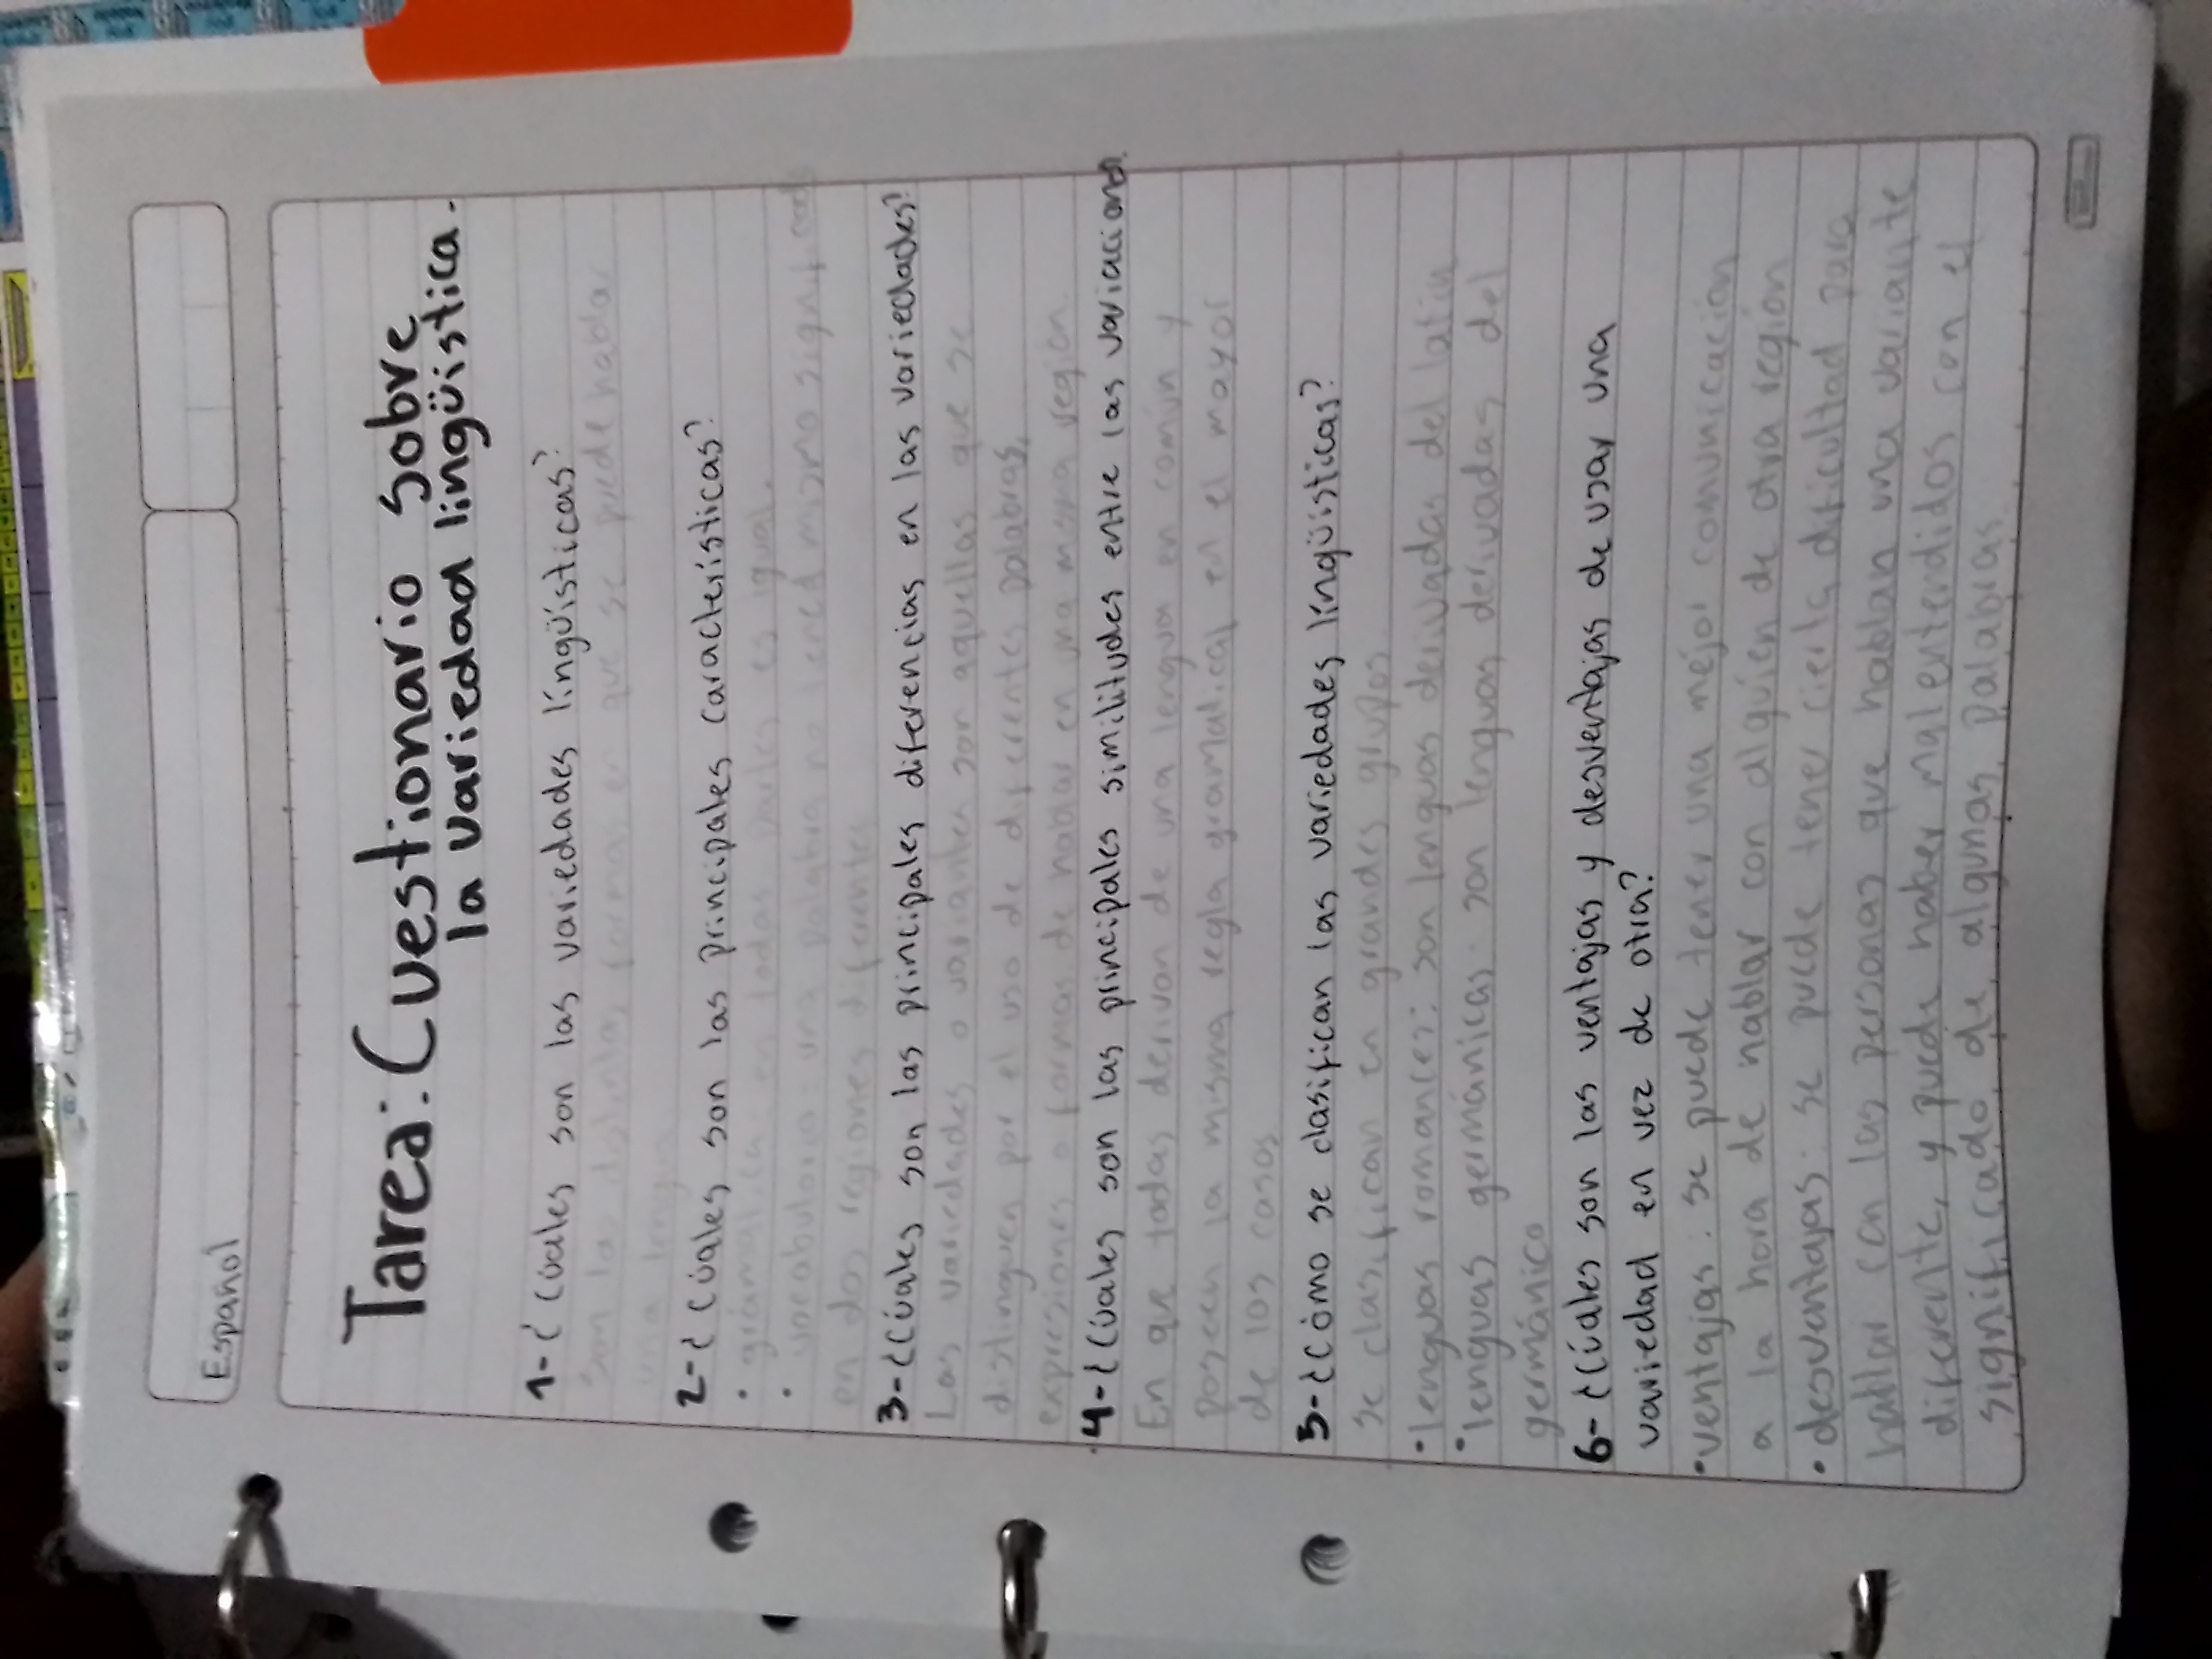 Español
Tarea: Cuestionario sobre
la variedad lingüística.
1-¿Cúales son las variedades língüísticas?
Son las distintas formas en que se puede hablar
una lengua
2-¿Cúales son las principales características?
• grámatica: en todas partes es igual.
• vocabulario: una palabra no tiene el mismo significado
en dos regiones diferentes
3-¿Cúales son las principales diferencias en las variedades?
Las variedades o variantes son aquellas que se
distinguen por el uso de diferentes palabras,
expresiones o formas de hablar en una misma region.
4-¿Cúales son las principales similitudes entre las variaciones?
En que todas derivan de una lengua en común y
poseen la misma regla gramatical en el mayor
de los casos
5-¿Cómo se clasifican las variedades língüísticas?
se clasifican en grandes grupos.
•lenguas romances: son lenguas derivadas del latín
•lenguas germánicas: son lenguas derivadas del
germánico
6-¿Cúales son las ventajas y desventajas de usar una
variedad en vez de otra?
•ventajas: se puede tener una mejor comunicación
a la hora de hablar con alguien de otra región
• desventajas: se puede tener cierta dificultad para
hablar con las personas que hablan una variante
diferente, y puede haber malentendidos con el
significado de algunas palabras